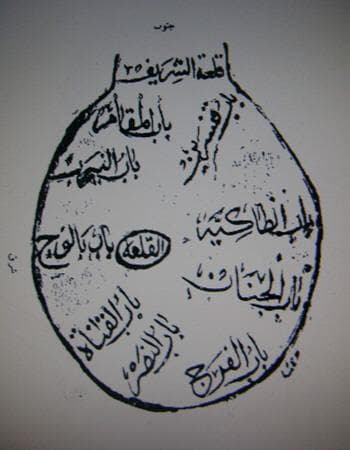 جنوب
قلعة الشريف
باب قنسرين
باب المقام
باب النيرب
باب انطاكية
القلعة
باب بالوج
باب الجنان
باب القناة
باب النصر
باب الفرج
شرق